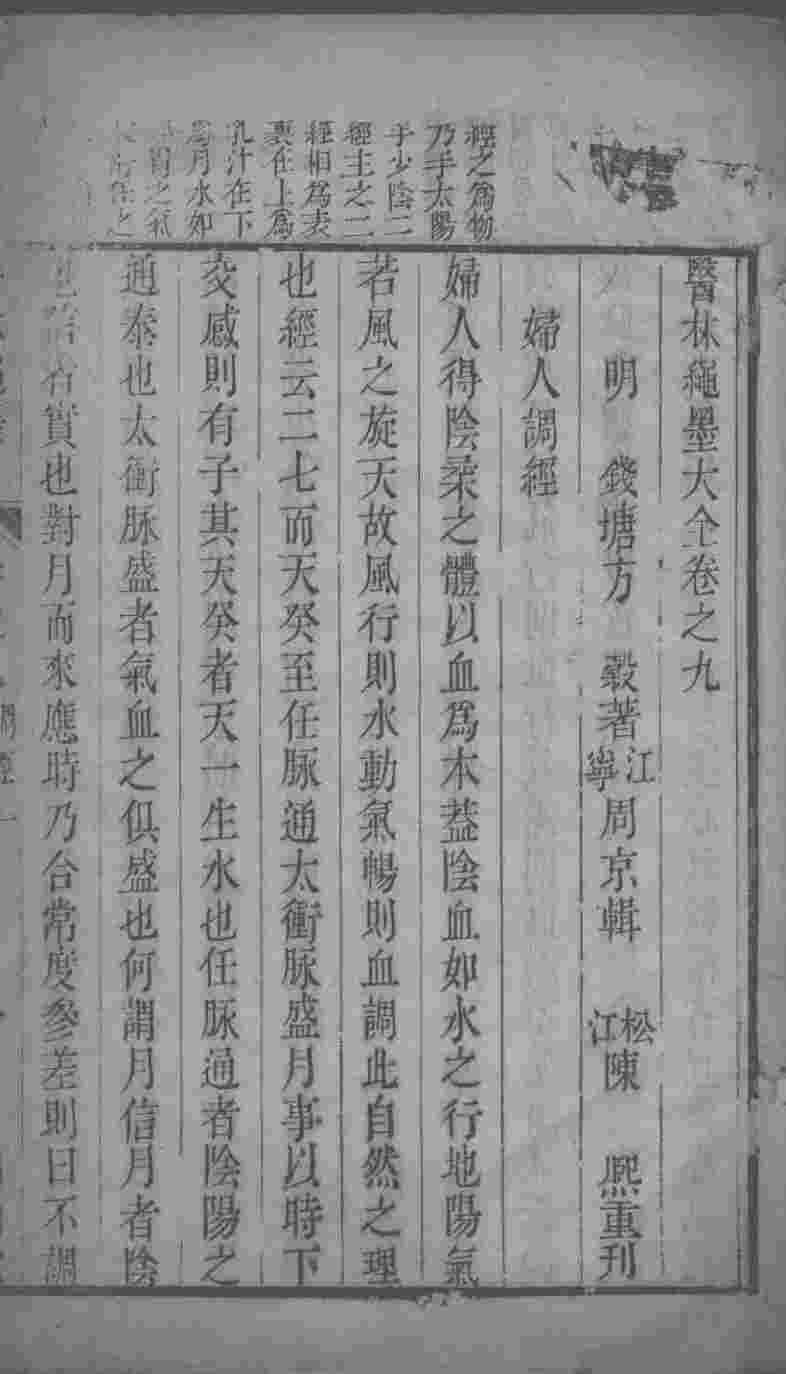 醫林繩墨大全卷之九
明 錢塘方 榖著 江寧 周京輯 松江 陳 熙重刊
婦人調經
婦人得陰柔之體以血爲本葢陰血如水之行地陽氣
若風之旋天故風行則水動氣暢則血調此自然之理
也經云二七而天癸至任脉通太衝脉盛月事以時下
交感則有子其天癸者天一生水也任脉通者陰陽之
通泰也太衝脉盛者氣血之俱盛也何謂月信月者陰
也信者實也對月而來應時乃合常度參差則曰不調
經之爲物
乃手太陽
手少陰二
經主之二
經相爲表
裏在上爲
乳汁在下
爲月水如
之氣